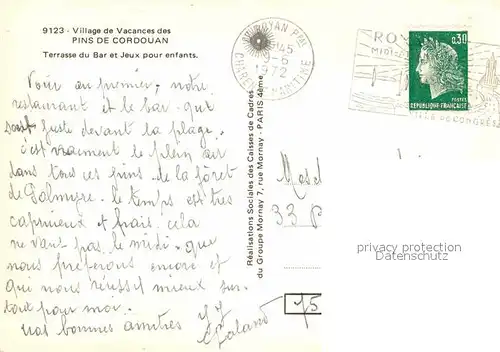 9123 - Village de Vacances des
PINS DE CORDOUAN
Terrasse du Bar et Jeux pour enfants.
Voici au premier, notre
restaurant et le bar qui
sont juste devant la plage.
c'est vraiment le plein air
dans tous ces pins de la forêt
de Palmyre. le temps est très
capricieux et frais, cela
ne vaut pas le midi que
nous préférons encore et
qui nous réussit mieux sur-
tout pour moi.
nos bonnes amitiés
Galand
Réalisations Sociales des Caisses de Cadres
du Groupe Mornay 7, rue Mornay - PARIS 4ème
17 ROYAN Ppal
45
9-6
1972
CHARENTE MARITIME
ROY
VILLE DE CONGRES
0,30
POSTES
REPUBLIQUE FRANCAISE
33
75
privacy protection
Datenschutz